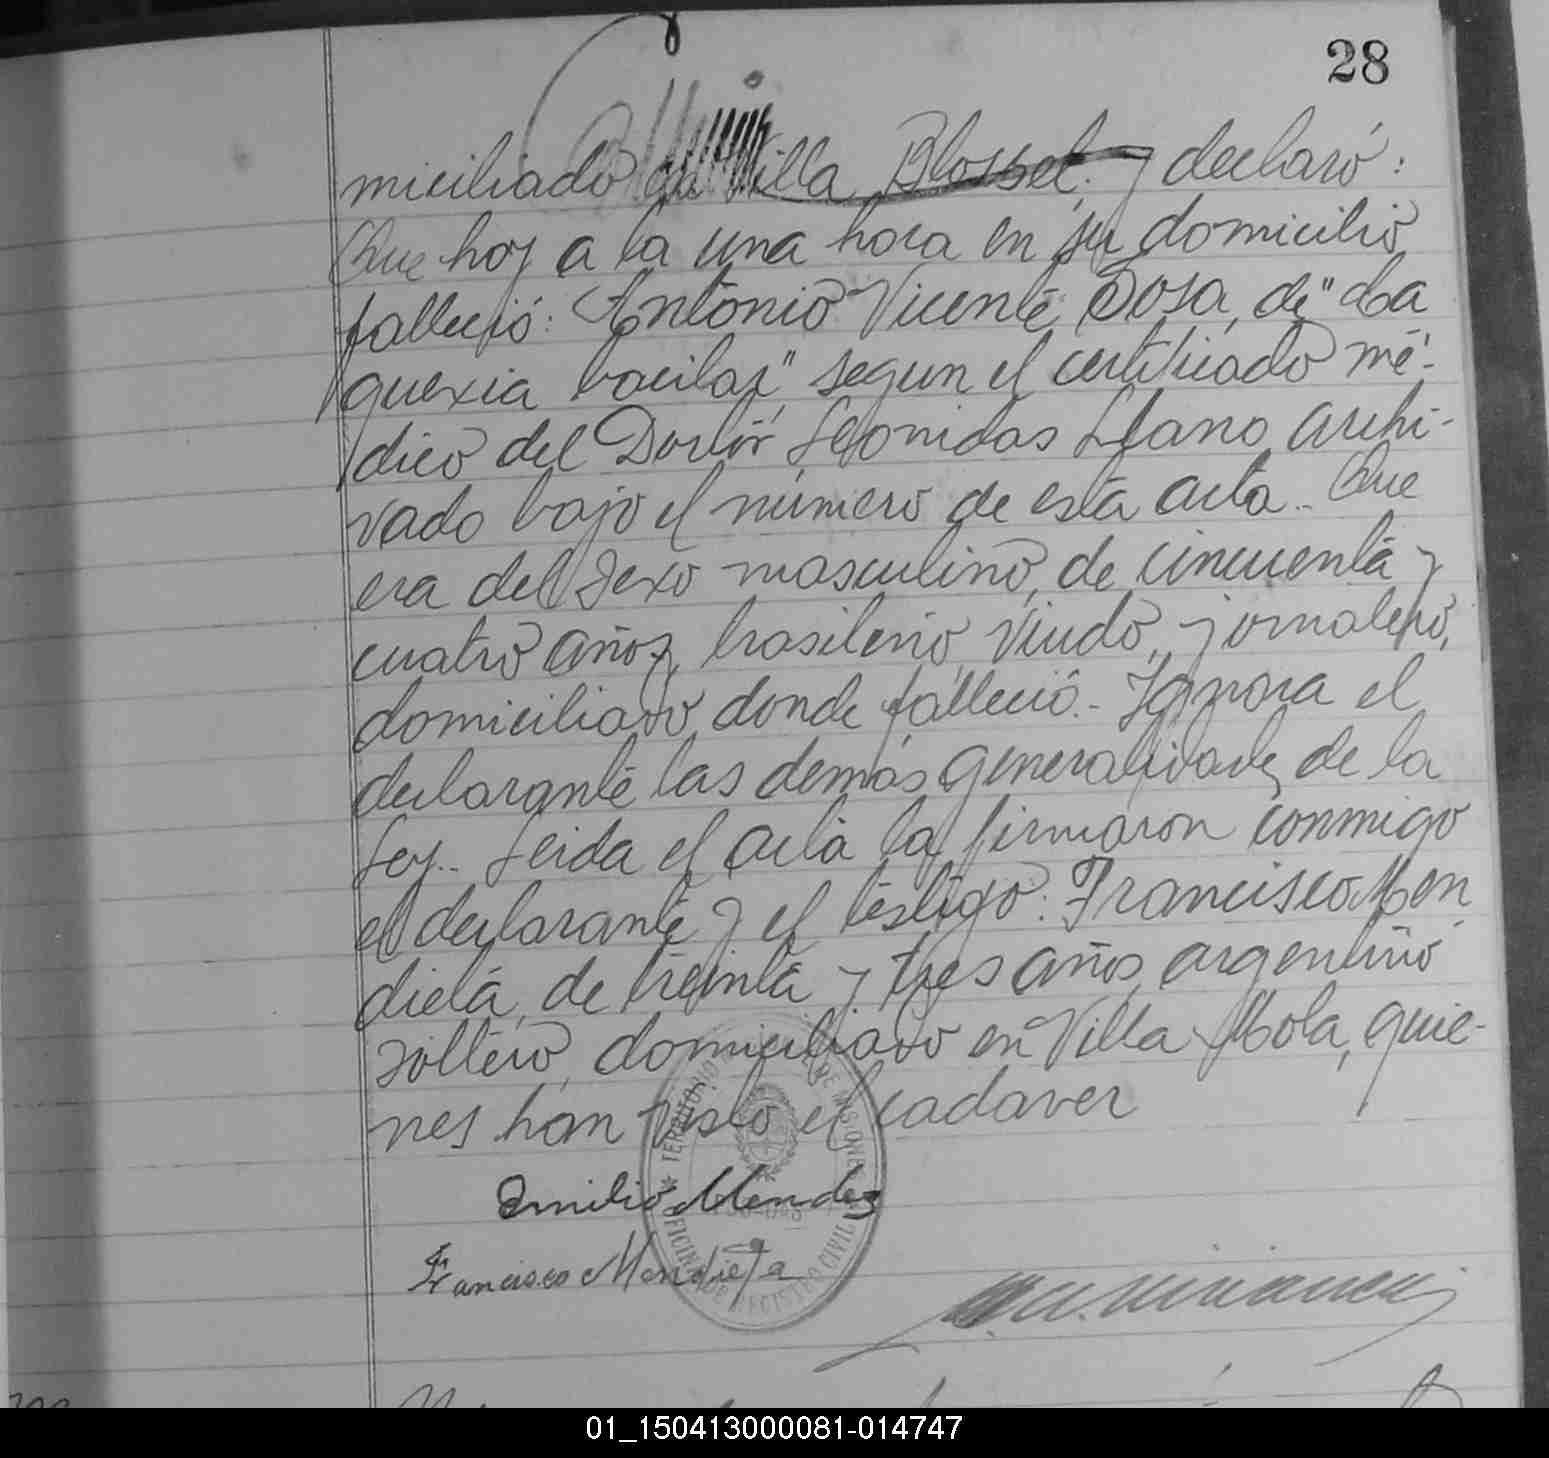 28
miciliado en Villa Blosset. y declaró:
Que hoy a la una hora en su domicilio
falleció: Antonio Vicente Sosa, de "Ca
quexia bacilar" segun el certificado mé-
dico del Doctor Leonidas Llano archi-
vado bajo el número de esta acta.. Que
era del sexo masculino, de cincuenta y
cuatro años, brasileño, viudo, jornalero,
domiciliado donde falleció.- Ignora el
declarante las demás generalidades de la
Ley.. Leida el acta la firmaron conmigo
el declarante y el testigo: Francisco Men
dieta, de treinta y tres años, argentino
soltero, domiciliado en Villa Mola, quie-
nes han visto el cadaver
Emilio Mendez
Francisco Mendieta
TERRITORIO DE MISIONES
OFICINA DE REGISTRO CIVIL
01_150413000081-014747